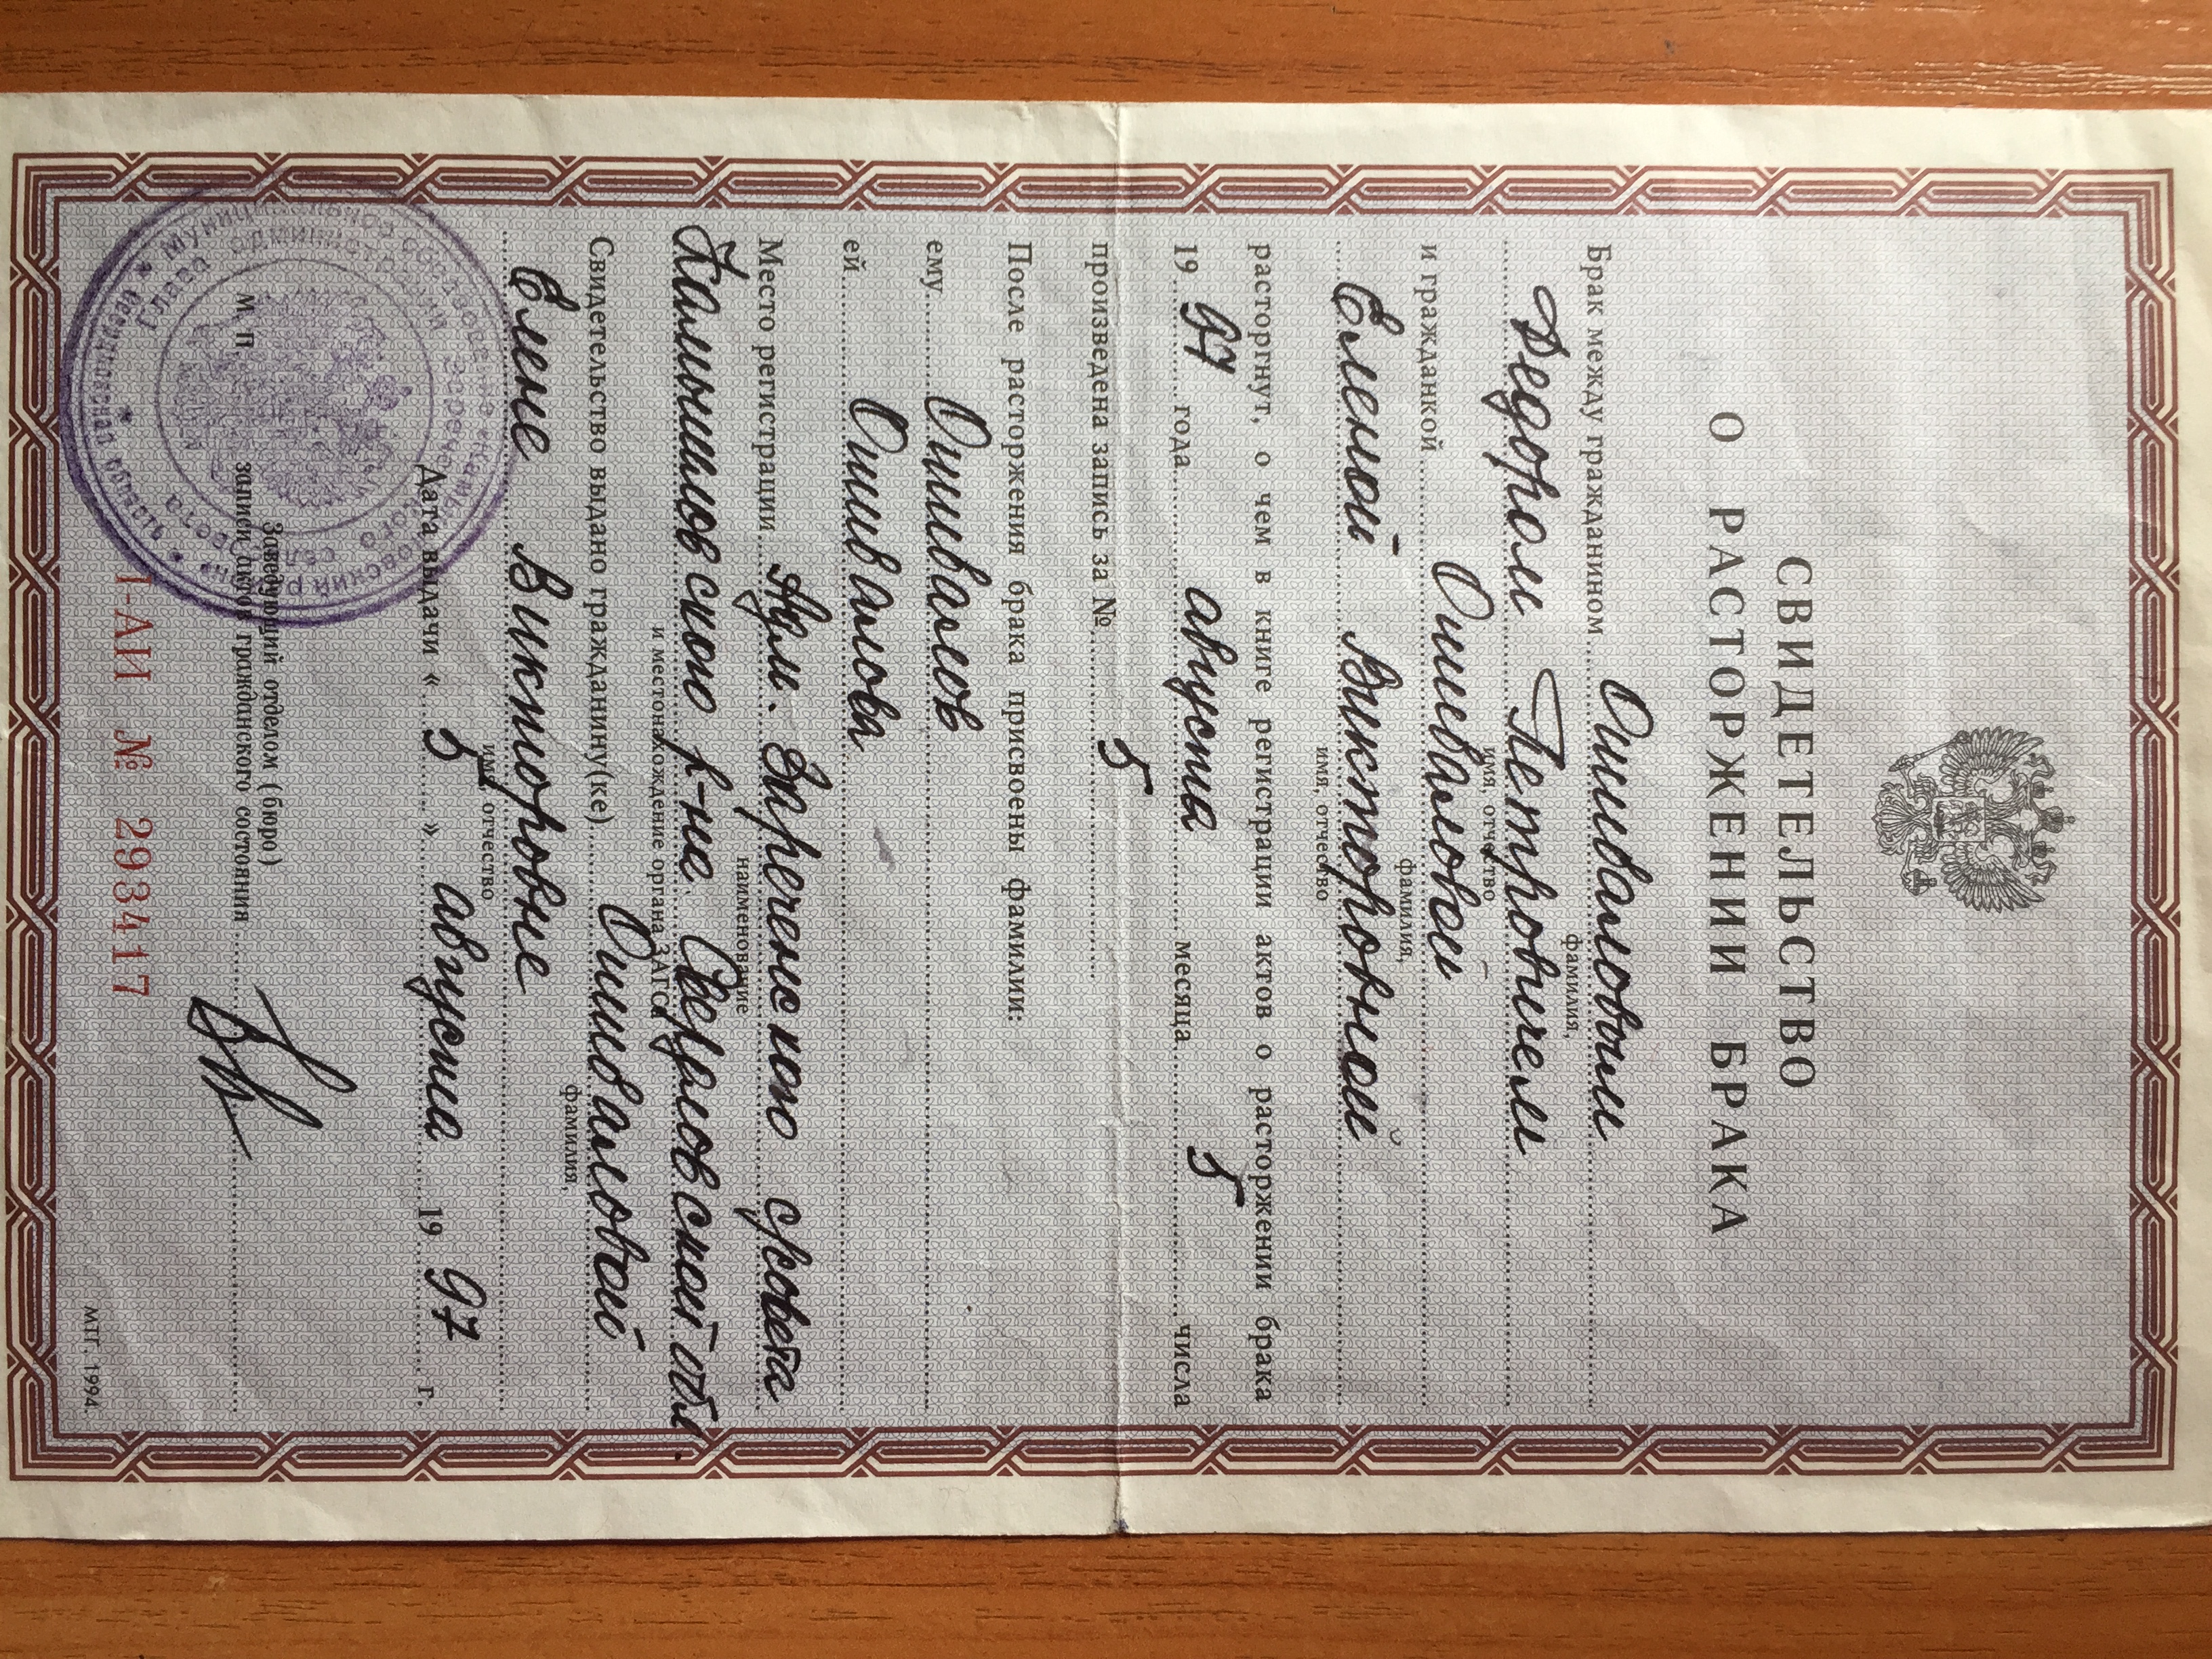 СВИДЕТЕЛЬСТВО
О РАСТОРЖЕНИИ БРАКА
Брак между гражданином Ошиваловым
фамилия,
Федором Петровичем
имя, отчество
и гражданкой Ошиваловой
фамилия,
Еленой Викторовной
имя, отчество
расторгнут, о чем в книге регистрации актов о расторжении брака
19 97 года августа месяца 5 числа
произведена запись за № 5
После расторжения брака присвоены фамилии:
ему Ошивалов
ей Ошивалова
Место регистрации Адм. Зареченского с/совета
наименование
Камышловского р-на Свердловской обл.
и местонахождение органа ЗАГСа
Свидетельство выдано гражданину(ке) Ошиваловой
фамилия,
Елене Викторовне
имя, отчество
Дата выдачи « 5 » августа 19 97 г.
М. П. Заведующий отделом (бюро)
записи актов гражданского состояния
I-АИ № 293417
МТГ. 1994.